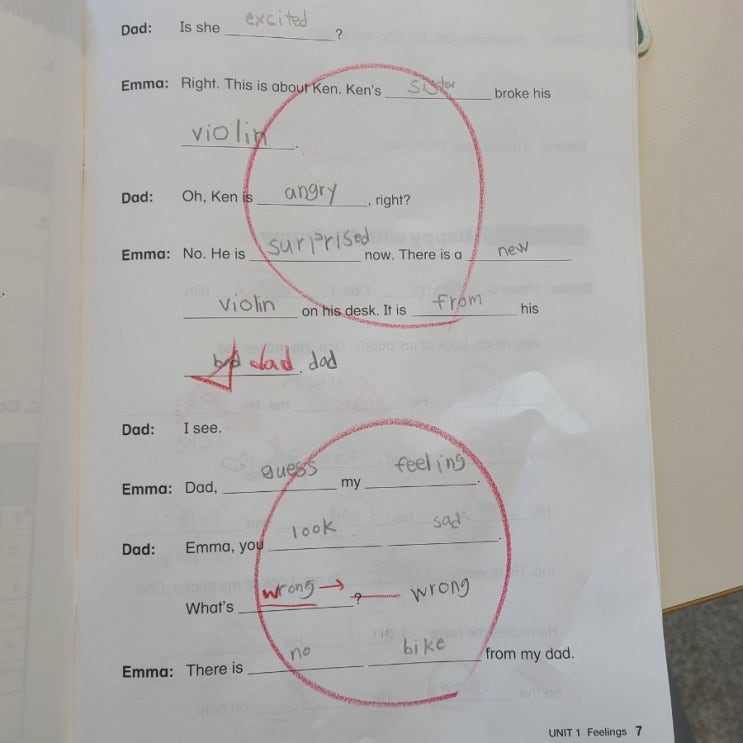 Dad: Is she excited?
Emma: Right. This is about Ken. Ken's sistor broke his
violin.
Dad: Oh, Ken is angry, right?
Emma: No. He is surprised now. There is a new
violin on his desk. It is from his
dad. dad
Dad: I see.
Emma: Dad, guess my feeling.
Dad: Emma, you look sad.
What's wrong → ? wrong
Emma: There is no bike from my dad.
UNIT 1 Feelings 7